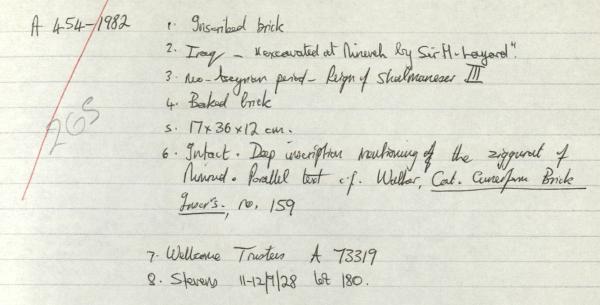 A 454-1982
1. Inscribed brick
2. Iraq - "excavated at Nineveh by Sir H. Layard".
3. Neo-Assyrian period - Reign of Shalmaneser III
4. Baked brick
5. 17 x 36 x 12 cm.
265
6. Intact. Deep inscription mentioning of the ziggurat of
Nimrud. Parallel text c.f. Walker, Cat. Cuneiform Brick
Inscr's, no. 159
7. Wellcome Trustees A 73319
8. Stevens 11-12/9/28 lot 180.